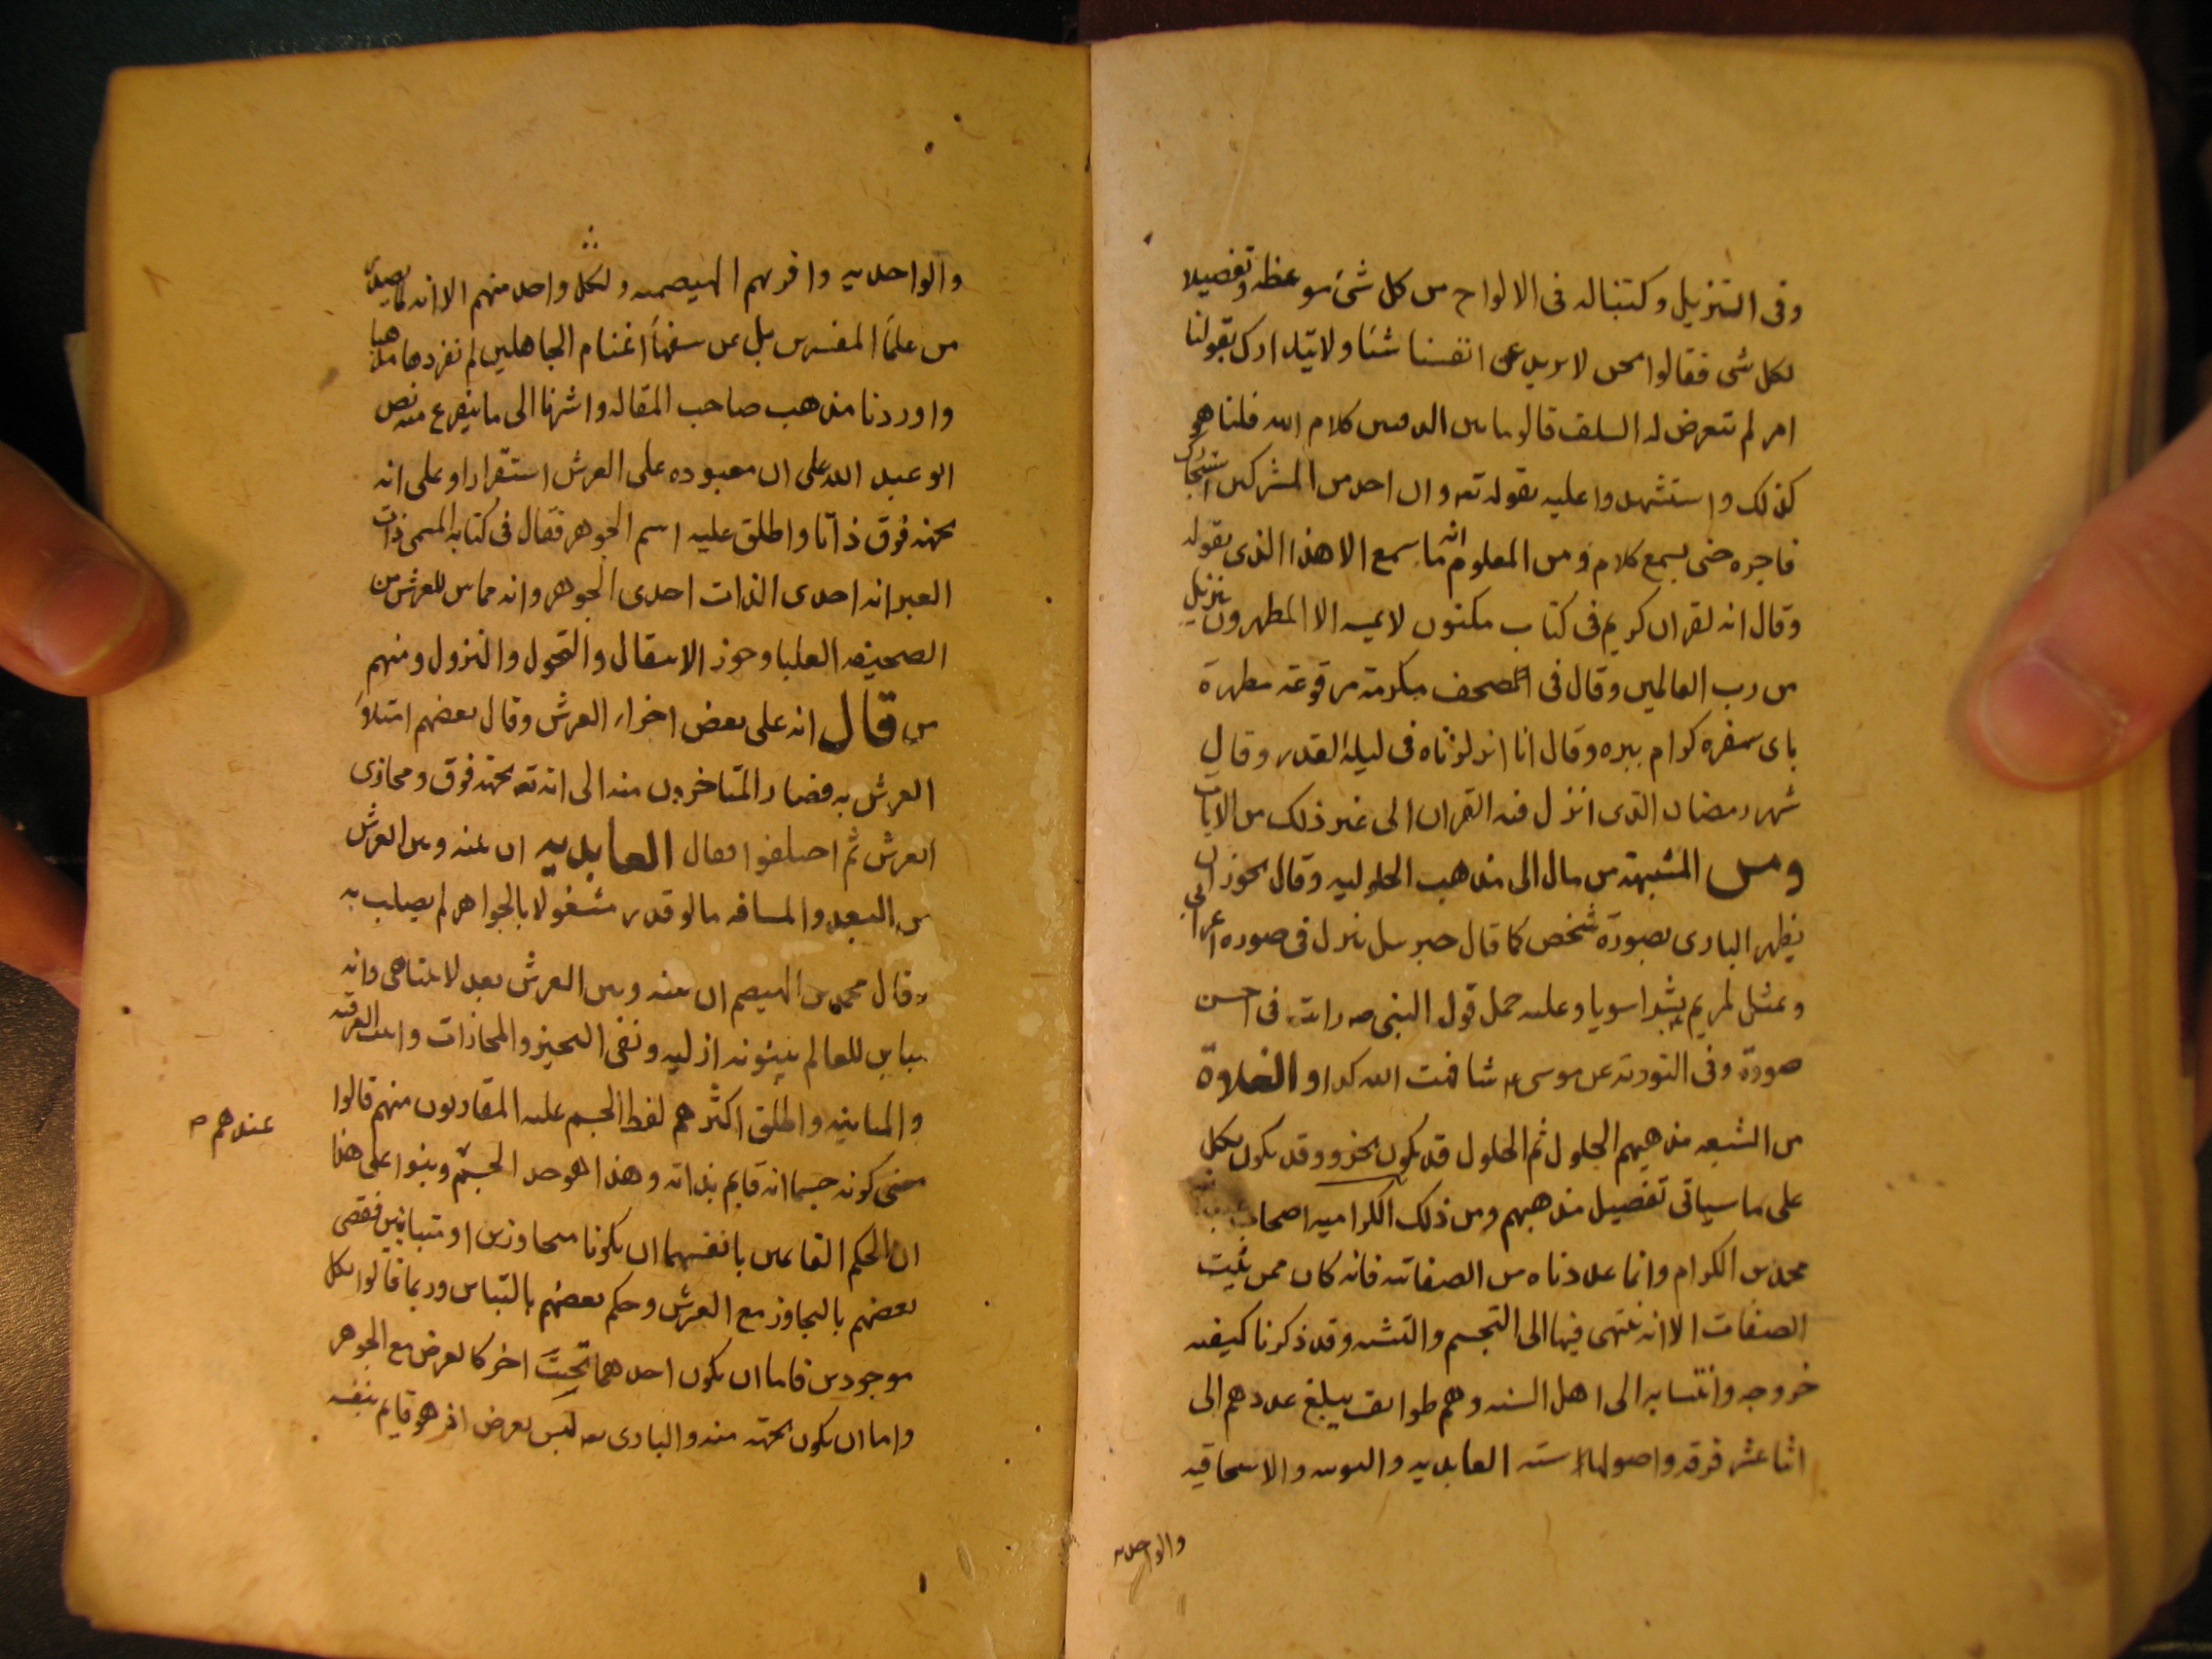 وفى التنزيل وكتبنا له فى الالواح من كل شئ موعظة وتفصيلا
لكل شى فقالوا نحن لا نريد عن انفسنا شئا ولا نتدارك بقولنا
امر لم تتعرض له السلف قالوا ما بين الدفتين كلام الله قلنا هو
كذلك واستشهدوا عليه بقوله تعه وان احد من المشركين استجارك
فاجره حتى يسمع كلام ومن المعلوم انه ما سمع الا هذا الذى نقوله
وقال انه لقران كريم فى كتاب مكنون لا يمسه الا المطهرون تنزيل
من رب العالمين وقال فى المصحف مكرمة مرفوعة مطهرة
باى سفرة كرام برره وقال انا انزلوناه فى ليلة القدر وقال
شهر رمضان الذى انزل فيه القران الى غير ذلك من الايات
ومن المشبهة من مال الى مذهب الحلوليه وقال يجوز ان
يظهر البارى بصورة شخص كما قال جبرييل نزل فى صورة اعرابى
وتمثل لمريم بشرا سويا وعليه حمل قول النبى صه رايت فى احسن
صورة وفى التورته عن موسى ء شافهت الله كذا والغلاة
من الشيعه مذهبهم الحلول ثم الحلول قد يكون بجزو وقد يكون بكل
على ما سياتى تفصيل مذهبهم ومن ذلك الكراميه اصحاب
محمد بن الكرام وانما عددناه من الصفاتيه فانه كان ممن يثبت
الصفات الا انه ينتهى فيها الى التجسم والتشبه وقد ذكرنا كيفيه
خروجه وانتسابه الى اهل السنه وهم طوايف يبلغ عددهم الى
اثنا عشر فرقه واصولها ستة العابديه والنونيه والاسحاقيه
والواحديه
والواحديه واقربهم الهيصميه ولكل واحد منهم الا انه
من علمآ المفسرين بل عن سفهآ اغنام الجاهلين لم نفردها مذهبا
واوردنا مذهب صاحب المقاله واشرنا الى ما يتفرع منه نص
ابو عبد الله على ان معبوده على العرش استقرارا وعلى انه
بجهة فوق ذاتا واطلق عليه اسم الجوهر فقال فى كتابه المسمى ذات
العبر انه احدى الذات احدى الجوهر وانه مماس للعرش من
الصحيفه العليا وجوز الانتقال والتحول والنزول ومنهم
من قال انه على بعض اجزاء العرش وقال بعضهم امتلاء
العرش به فصار المتاخرون منه الى انه تعه بجهة فوق ومحاذى
العرش ثم اختلفوا فقال العابديه ان بينه وبين العرش
من البعد والمسافه ما لو قدر مشغولا بالجواهر لم يصلب به
وقال محمد بن الهيصم ان بينه وبين العرش بعد لا يتناهى وانه
مباين للعالم بينونه ازليه ونفى التحيز والمحاذات واثبت الفوقيه
والمباينه واطلق اكثرهم لفظ الجسم عليه المقاربون منهم قالوا
معنى كونه جسما انه قايم بذاته وهذا هو حد الجسم وبنوا على هذا
عندهم
ان الحكم القايمين بانفسهما ان يكونا متجاوزين او متباينين فقضى
بعضهم بالتجاوز مع العرش وحكم بعضهم بالتباين وربما قالوا كل
موجودين فاما ان يكون احدهما تحيت اخر كالعرض مع الجوهر
واما ان يكون بجهة منه والبارى تعه ليس بعرض اذ هو قايم بنفسه